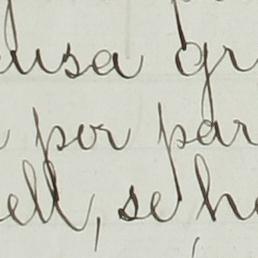 usa gr
por par
ell, se ha